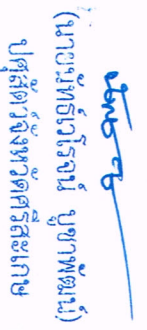 (นายอินทร์เวโรจน์ บูชาพัฒน์)
ปศุสัตว์จังหวัดศรีสะเกษ